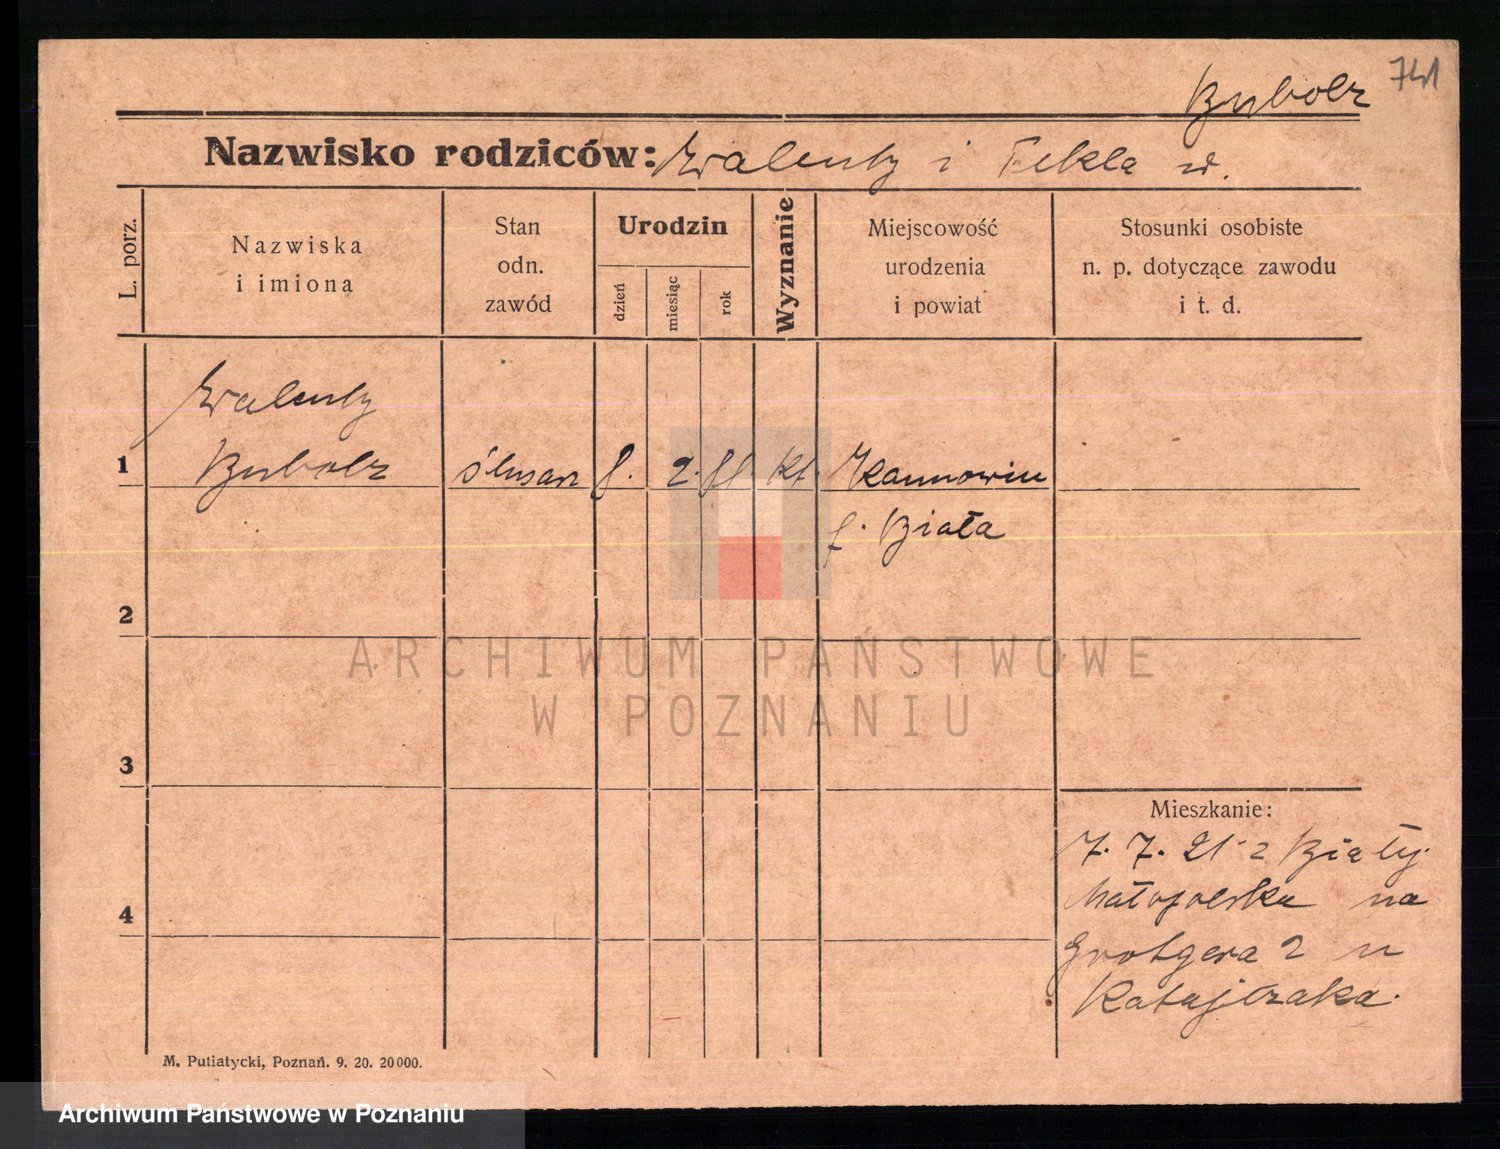 741
Bubolz
Nazwisko rodziców: Walenty i Tekla w.
L. porz.
Nazwiska
i imiona
Stan
odn.
zawód
Urodzin
dzień
miesiąc
rok
Wyznanie
Miejscowość
urodzenia
i powiat
Stosunki osobiste
n. p. dotyczące zawodu
i t. d.
Walenty
1 Bubolz ślusarz 8. 2. 88 kt.
p. Biała
2
ARCHIWUM PAŃSTWOWE
W POZNANIU
3
Mieszkanie:
7. 7. 21 z Białej
Małopolska na
4
Grotgera 2 u
Ratajczaka.
M. Putiatycki, Poznań. 9. 20. 20000.
Archiwum Państwowe w Poznaniu